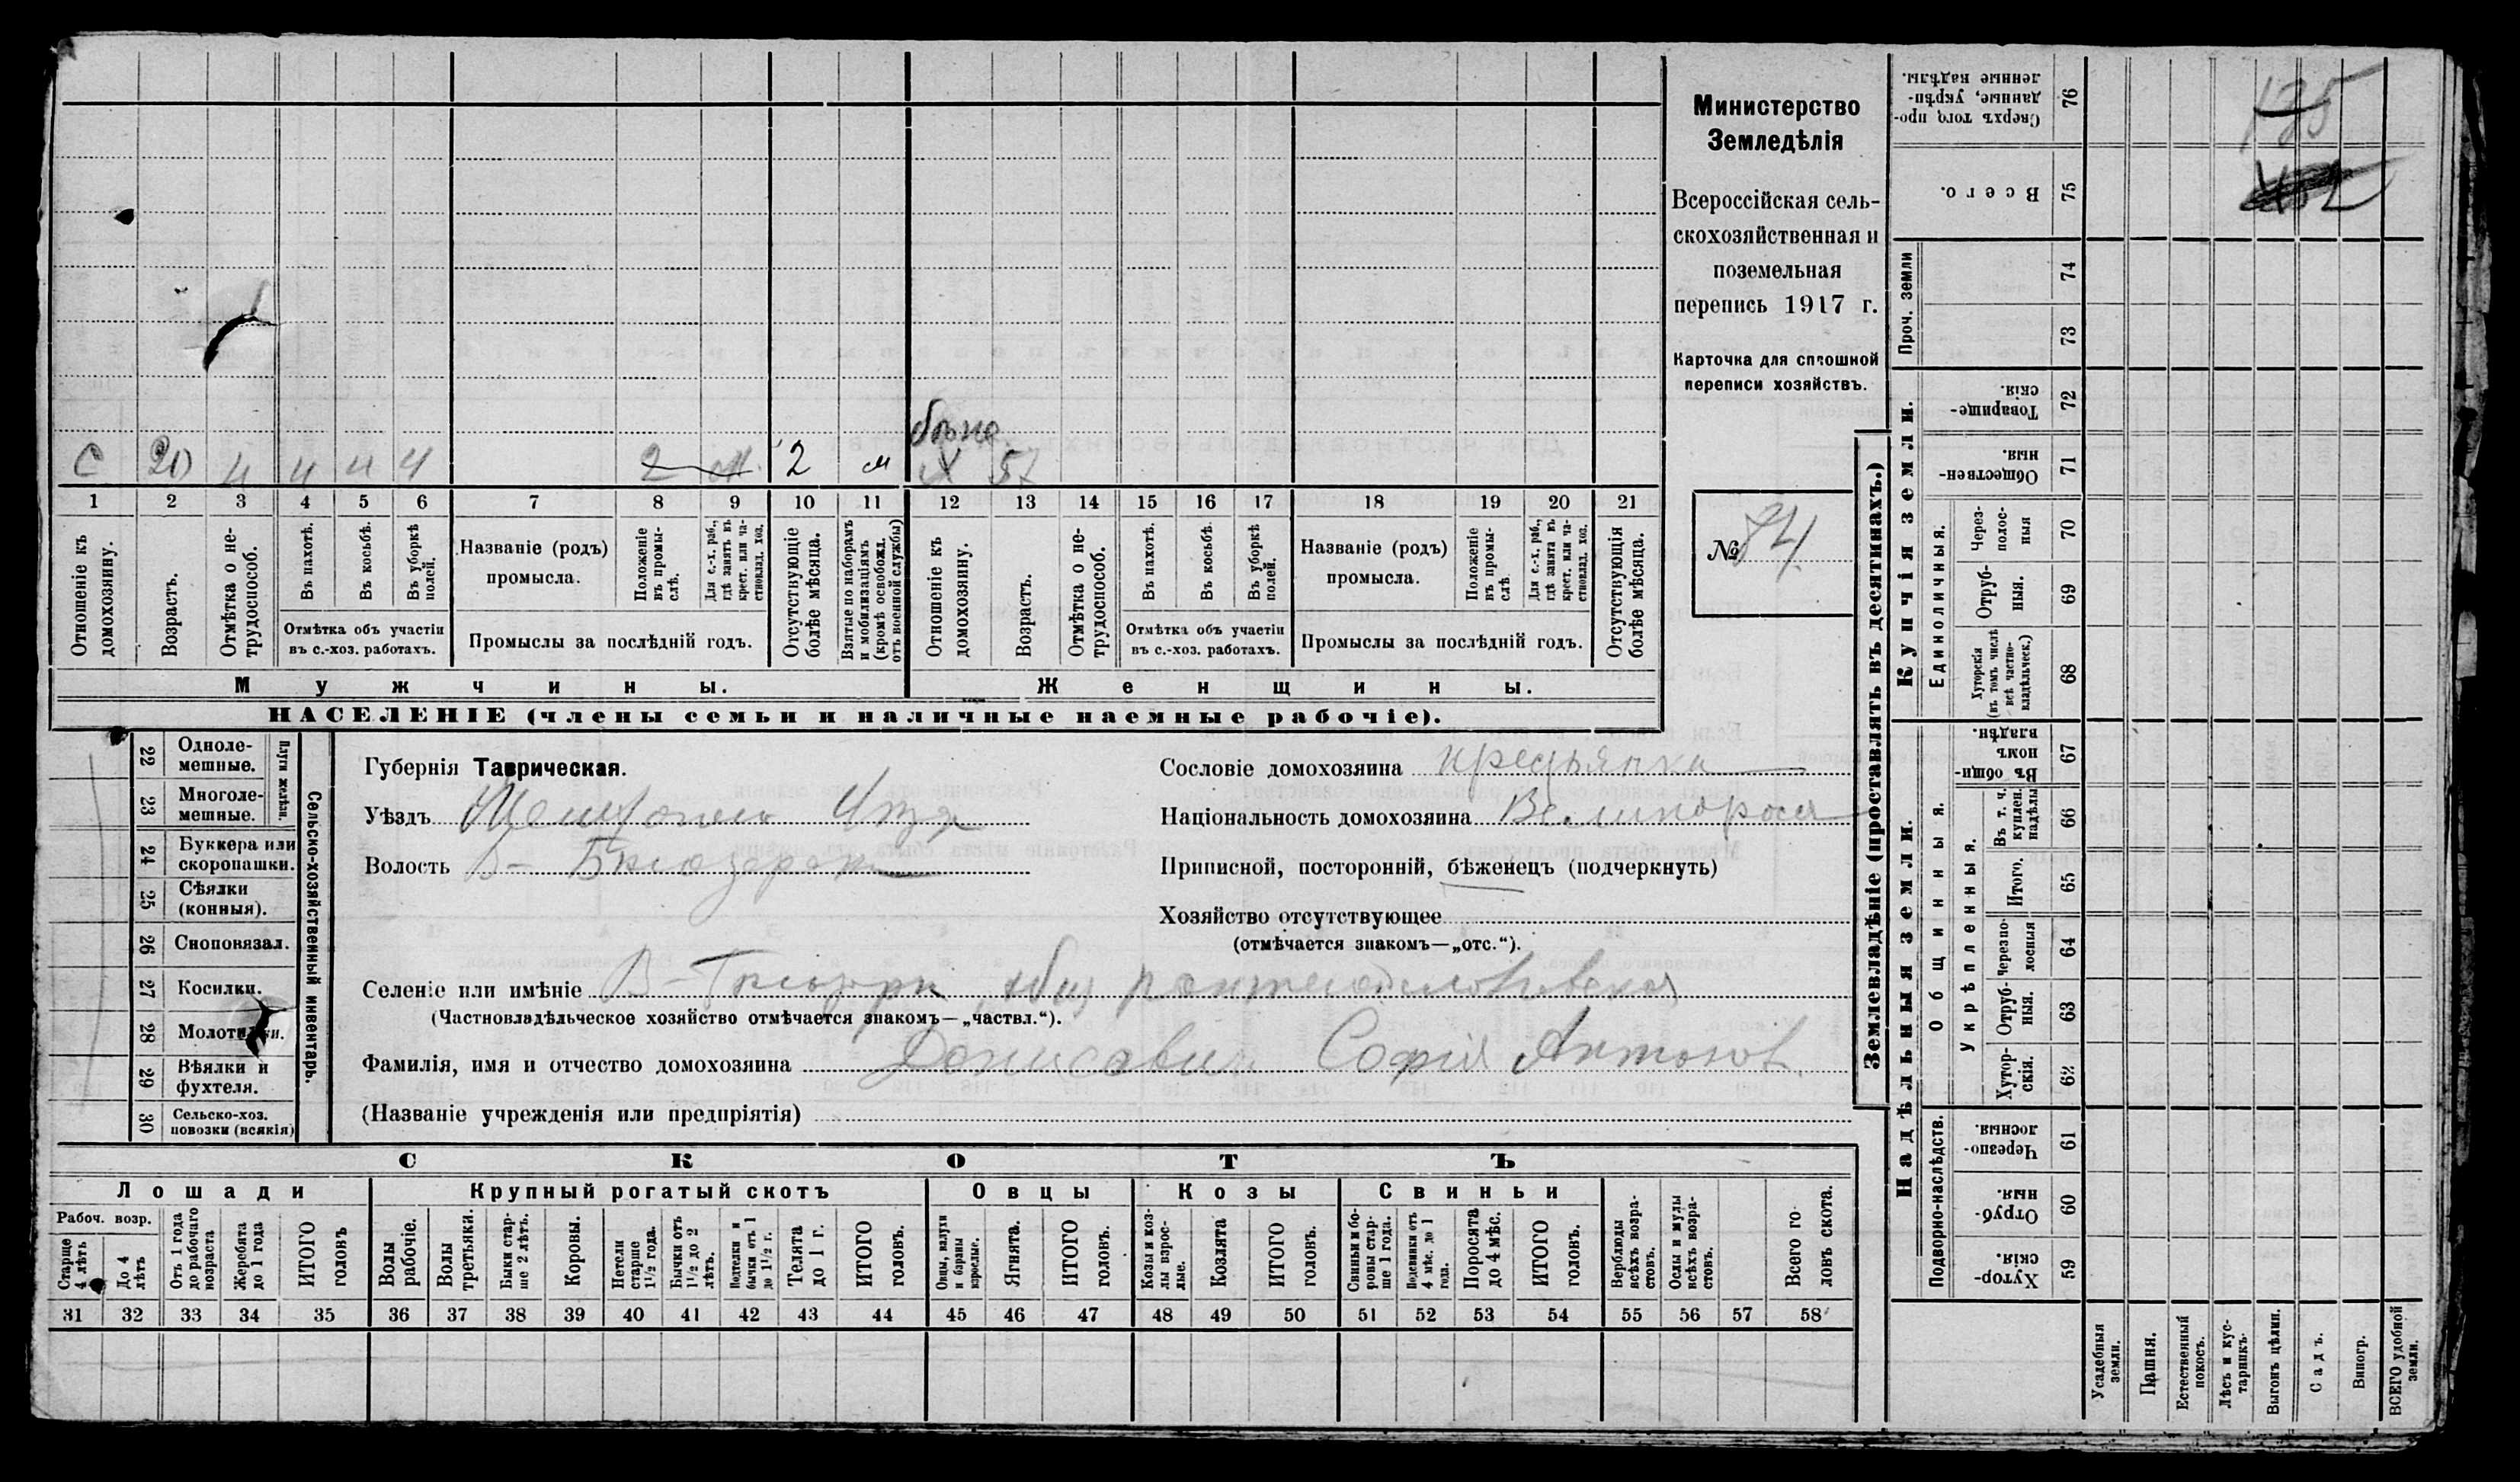 Министерство
Земледѣлія
Всероссійская сель-
скохозяйственная и
поземельная
перепись 1917 г.
Карточка для сплошной
переписи хозяйствъ.
№ 74.
С 20 4 4 4 4 2 2 м 57
1 2 3 4 5 6 7 8 9 10 11 12 13 14 15 16 17 18 19 20 21
Отношеніе къ домохозяину.
Возрастъ.
Отмѣтка о не-трудоспособ.
Въ пахотѣ.
Въ косьбѣ.
Въ уборкѣ полей.
Отмѣтка объ участіи
въ с.-хоз. работахъ.
Названіе (родъ)
промысла.
Положеніе въ промы-слѣ.
Для с.-х. раб., гдѣ занятъ въ крест. или ча-стновлад. хоз.
Промыслы за послѣдній годъ.
Отсутствующіе болѣе мѣсяца.
Взятые по наборамъ и мобилизаціямъ (кромѣ освобожд. отъ военной службы)
Отношеніе къ домохозяину.
Возрастъ.
Отмѣтка о не-трудоспособ.
Въ пахотѣ.
Въ косьбѣ.
Въ уборкѣ полей.
Отмѣтка объ участіи
въ с.-хоз. работахъ.
Названіе (родъ)
промысла.
Положеніе въ промы-слѣ.
Для с.-х. раб., гдѣ занята въ крест. или ча-стновлад. хоз.
Промыслы за послѣдній годъ.
Отсутствующія болѣе мѣсяца.
Мужчины.
Женщины.
НАСЕЛЕНІЕ (члены семьи и наличные наемные рабочіе).
Сельско-хозяйственный инвентарь.
Плуги желѣзн.
22 Одноле-мешные.
23 Многоле-мешные.
24 Буккера или скоропашки.
25 Сѣялки (конныя).
26 Сноповязал.
27 Косилки.
28 Молотилки.
29 Вѣялки и фухтеля.
30 Сельско-хоз. повозки (всякія)
Губернія Таврическая.
Уѣздъ
Волость
Сословіе домохозяина крестьянка
Національность домохозяина Великоросс
Приписной, посторонній, бѣженецъ (подчеркнуть)
Хозяйство отсутствующее
(отмѣчается знакомъ—„отс.“).
Селеніе или имѣніе
(Частновладѣльческое хозяйство отмѣчается знакомъ—„частвл.“).
Фамилія, имя и отчество домохозяина Софія Антонов.
(Названіе учрежденія или предпріятія)
СКОТЪ
Лошади
Крупный рогатый скотъ
Овцы
Козы
Свиньи
Рабоч. возр.
Старше 4 лѣтъ
До 4 лѣтъ
Отъ 1 года до рабочаго возраста
Жеребята до 1 года
ИТОГО головъ
Волы рабочіе.
Волы третьяки.
Быки стар-ше 2 лѣтъ.
Коровы.
Нетели старше 1½ года.
Бычки отъ 1½ до 2 лѣтъ.
Подтелки и бычки отъ 1 до 1½ г.
Телята до 1 г.
ИТОГО головъ.
Овцы, валухи и бараны взрослые.
Ягнята.
ИТОГО головъ.
Козы и коз-лы взрос-лые.
Козлята
ИТОГО головъ.
Свиньи и бо-ровы стар-ше 1 года.
Подсвинки отъ 4 мѣс. до 1 года.
Поросята до 4 мѣс.
ИТОГО головъ.
Верблюды всѣхъ возра-стовъ.
Ослы и мулы всѣхъ возра-стовъ.
Всего го-ловъ скота.
31 32 33 34 35 36 37 38 39 40 41 42 43 44 45 46 47 48 49 50 51 52 53 54 55 56 57 58
Землевладѣніе (проставлять въ десятинахъ.)
Надѣльныя земли.
Купчія земли.
Проч. земли
Подворно-наслѣдств.
Общинныя.
Укрѣпленныя.
Единоличныя.
Сверхъ того, про-данные, укрѣп-ленные надѣлы. 76
Всего. 75
74
73
Товарище-скія. 72
Обществен-ныя. 71
Через-полос-ныя 70
Отруб-ныя. 69
Хуторскія (въ томъ числѣ всѣ частно-владѣльческ.) 68
Въ общин-номъ владѣн. 67
Въ т. ч. куплен. надѣлы 66
Итого. 65
Черезпо-лосныя 64
Отруб-ныя. 63
Хутор-скія. 62
Черезпо-лосныя. 61
Отруб-ныя. 60
Хутор-скія 59
Усадебныя земли.
Пашня.
Естественный покосъ.
Лѣсъ и кус-тарникъ.
Выгонъ цѣлин.
Садъ.
Виногр.
ВСЕГО удобной земли.
135